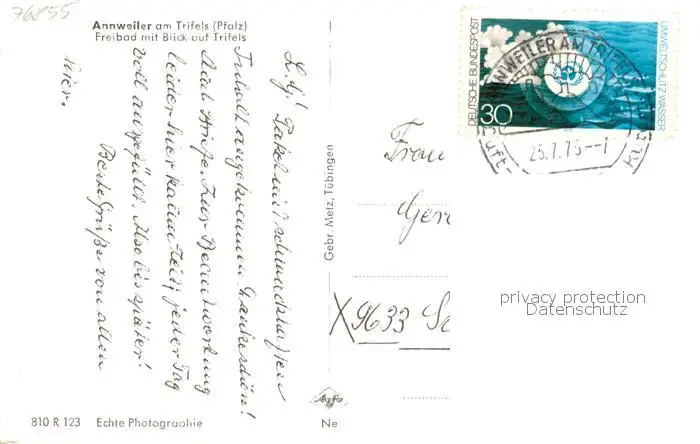 76855
Annweiler am Trifels (Pfalz)
Freibad mit Blick auf Trifels
L. G.!
Paket mit schmackhaften
Inhalt angekommen. Dankeschön!
Auch Briefe. Zur Beantwortung
leider hier kaum Zeit, jeder Tag
voll ausgefüllt. Also bis später!
Beste Grüße von allen
Gebr. Metz, Tübingen
DEUTSCHE BUNDESPOST
UMWELTSCHUTZ WASSER
30
ANNWEILER AM TRIFELS
LUFT-
25.7.76--1
Frau
X 9633
privacy protection
Datenschutz
Agfa
810 R 123 Echte Photographie
Ne